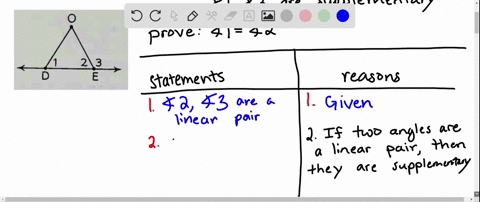 are supplementary
prove: ∡1 = ∡2
O
1 2 3
D E
statements reasons
1. ∡2, ∡3 are a
linear pair
1. Given
2.
2. If two angles are
a linear pair, then
they are supplementary